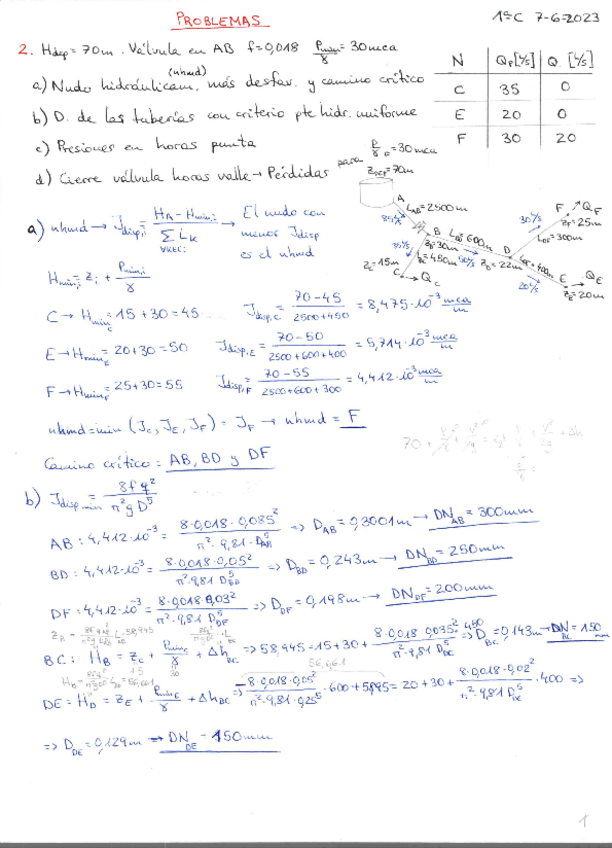 PROBLEMAS
1ºC 7-6-2023
2. Hdep = 70m. Válvula en AB f=0,018 Pmin/γ = 30mca
(nhmd)
a) Nudo hidráulicam. más desfav. y camino crítico
b) D. de las tuberías con criterio pte hidr. uniforme
c) Presiones en horas punta
d) Cierre válvula horas valle → Pérdidas para P/γ = 30 mca
N Qp[l/s] Q [l/s]
C 35 0
E 20 0
F 30 20
zDEP = 70m
A
LAB = 2500m
85 l/s
B
zB = 30m
LBD = 600m
35 l/s
LBC = 450m
50 l/s
zC = 15m
C
QC
D
zD = 22m
30 l/s
F
QF
zF = 25m
LDF = 300m
LDE = 400m
20 l/s
E
QE
zE = 20m
a) nhmd → Jdisp,i = (HA - Hmin,i) / (Σ LK) → El nudo con
menor Jdisp
es el nhmd
Hmin,i = zi + Pmin,i/γ
C → HminC = 15+30 = 45 Jdisp,C = (70-45)/(2500+450) = 8,475·10⁻³ mca/m
E → HminE = 20+30 = 50 Jdisp,E = (70-50)/(2500+600+400) = 5,714·10⁻³ mca/m
F → HminF = 25+30 = 55 Jdisp,F = (70-55)/(2500+600+300) = 4,412·10⁻³ mca/m
nhmd = min (JC, JE, JF) = JF → nhmd = F
Camino crítico: AB, BD y DF
b) Jdisp min = 8fq²/(π²gD⁵)
AB: 4,412·10⁻³ = (8·0,018·0,085²)/(π²·9,81·DAB⁵) => DAB = 0,3001m → DNAB = 300mm
BD: 4,412·10⁻³ = (8·0,018·0,05²)/(π²·9,81 DBD⁵) => DBD = 0,243m → DNBD = 250mm
DF: 4,412·10⁻³ = (8·0,018·0,03²)/(π²·9,81 DDF⁵) => DDF = 0,198m → DNDF = 200mm
BC: HB = zC + PminC/γ + ΔhBC => 58,945 = 15+30+ (8·0,018·0,035²·450)/(π²·9,81 DBC⁵) => DBC = 0,143m → DNBC = 150mm
56,661
DE: HD = zE + PminE/γ + ΔhDC => -(8·0,018·0,05²)/(π²·9,81 0,25⁵)·600+58,945 = 20+30+ (8·0,018·0,02²)/(π²·9,81 DDE⁵)·400 =>
=> DDE = 0,129m → DNDE = 150mm
1